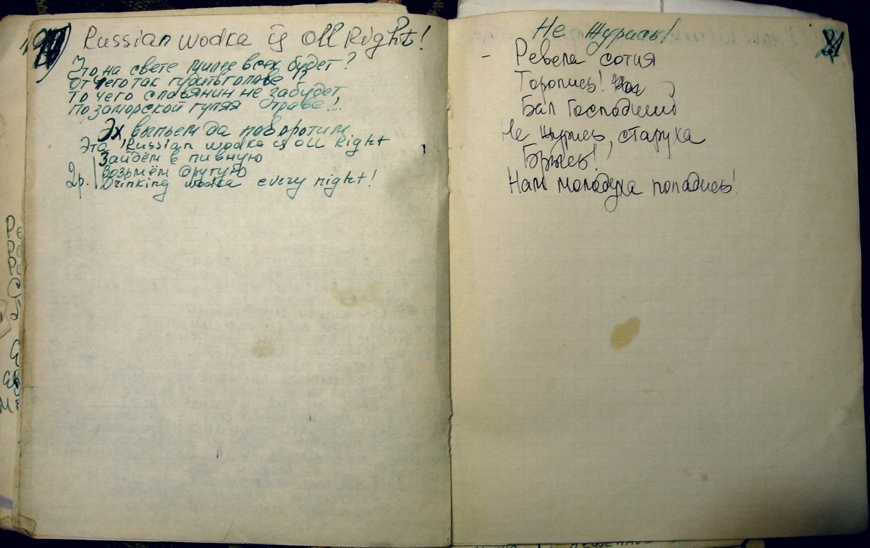 Russian wodka is oll Right!
Что на свете милее всех будет?
От чего так гудит голова
То чего славянин не забудет
По заморской гуляя
Эх выпьем да поворотим
Эта Russian wodka is oll Right
Зайдём в пивную
2р. Возьмём другую
Drinking wodka every night!
Не журись!
21
- Ревела сотня
Торопись!
Бал Господний
Не журись, старуха
Брысь!
Нам молодуха попадись!